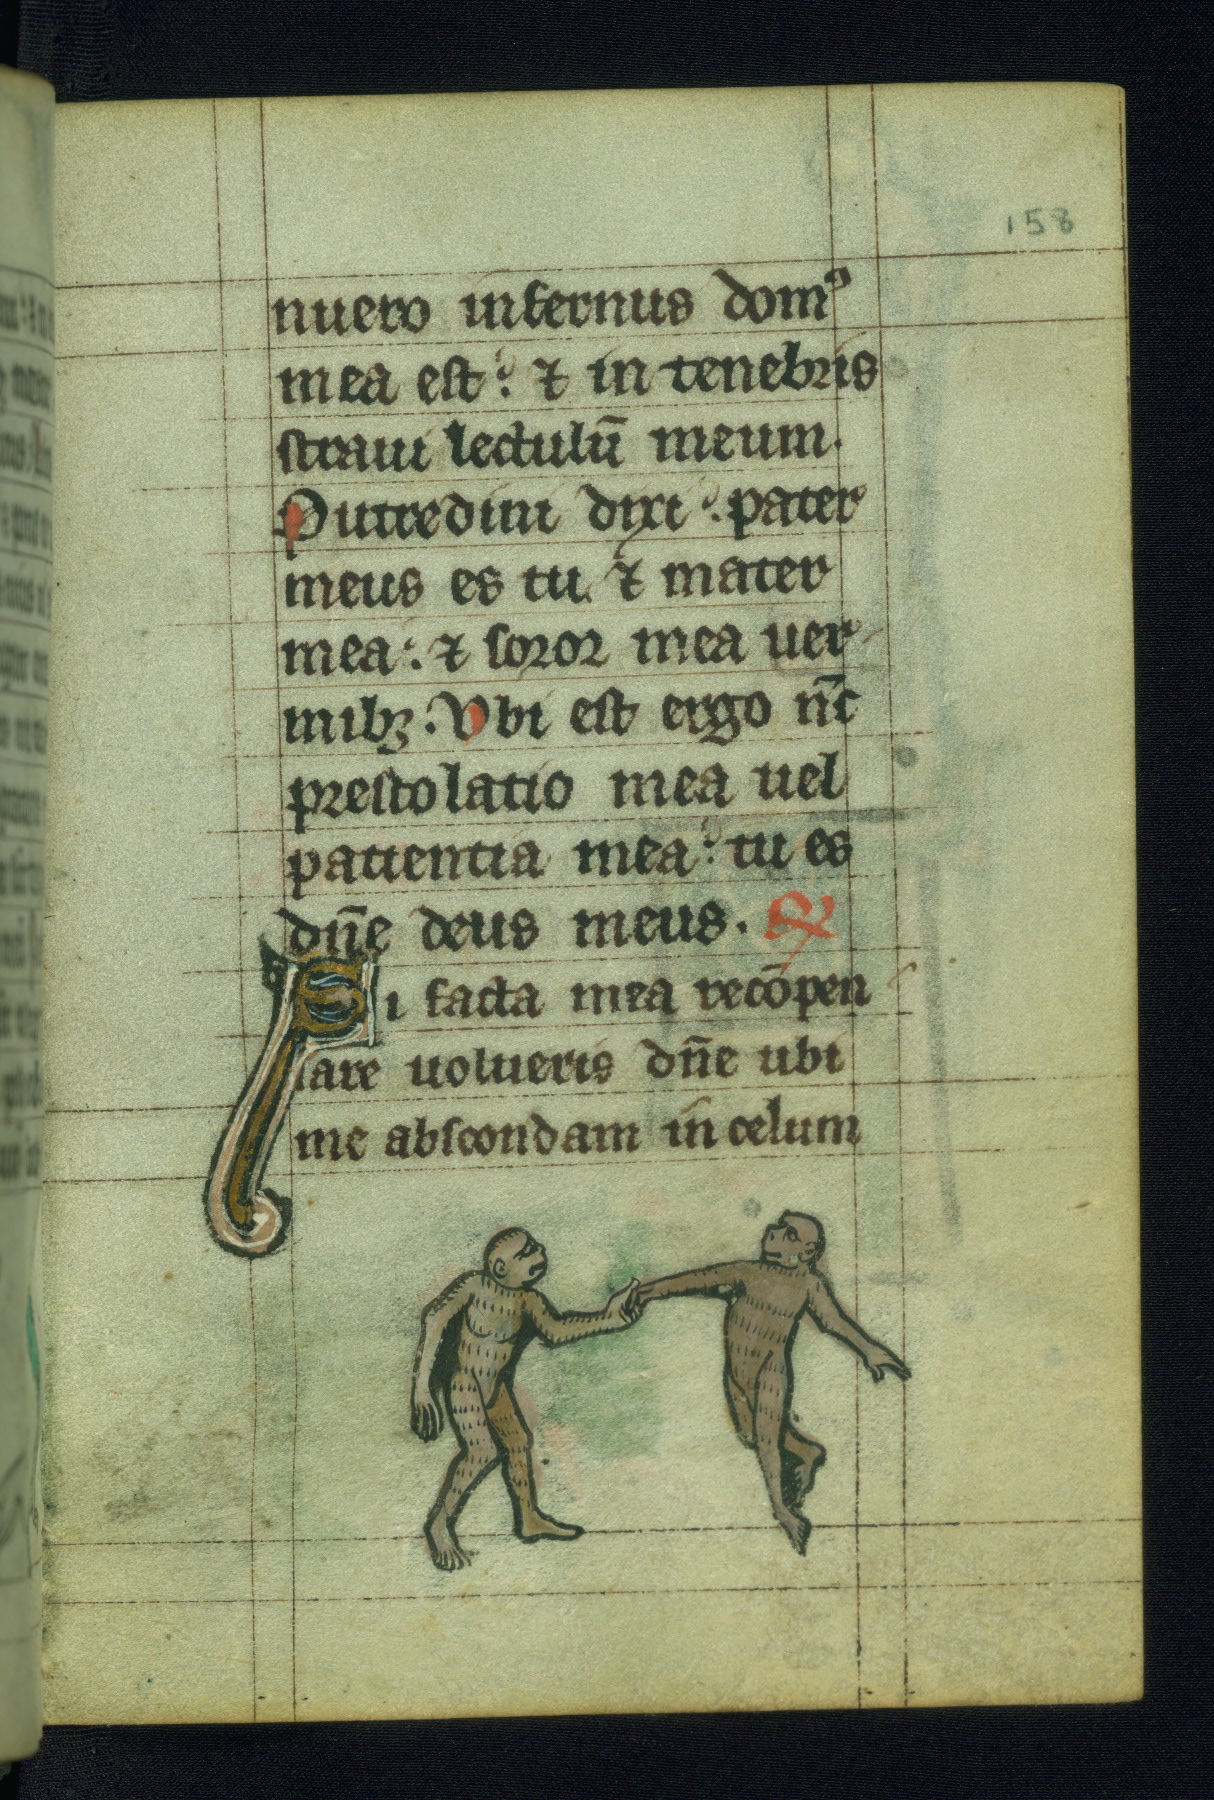 158
nuero infernus domꝰ
mea est? ⁊ in tenebris
straui lectulū meum.
Putredini dixi? pater
meus es tu. ⁊ mater
mea: ⁊ soror mea uer
mibꝫ. Vbi est ergo nūc
prestolatio mea uel
patientia mea? tu es
dn̄e deus meus. ℟
Si facta mea recōpen
sare uolueris dn̄e ubi
me abscondam in celum